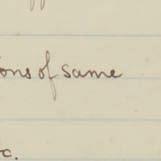 ons of same
c.